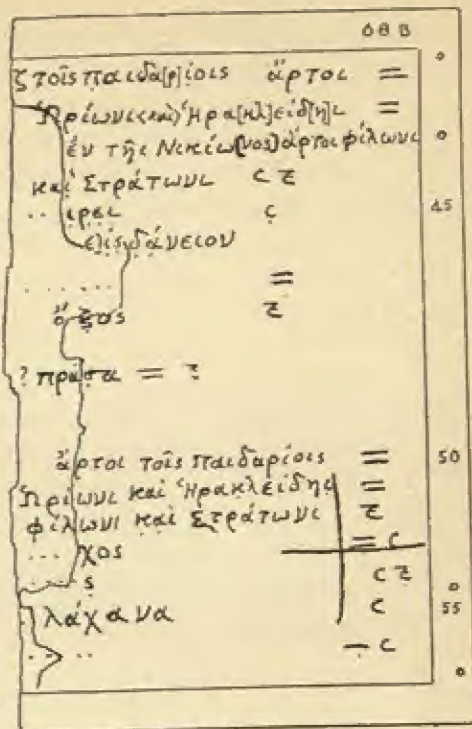 οββ
ζ τοῖς παιδα[ρ]ίοις ἄρτοι =
Ὡρίωνι <καὶ> Ἡρα[κλ]είδ[η]ι =
ἐν τῆι Νικίω[νος] ἄρτοι φίλωνι
καὶ Στράτωνι c ƶ
. . ιρει c 45
ε]ἰς δάνειον
. . . . . . =
ὄξος ƶ
? πράσα = ƶ
ἄρτοι τοῖς παιδαρίοις = 50
Ὡρίωνι καὶ Ἡρακλείδηι =
φίλωνι καὶ Στράτωνι ƶ
. . . χος = c
. . . ς c ƶ
λάχανα c 55
. . . . – c